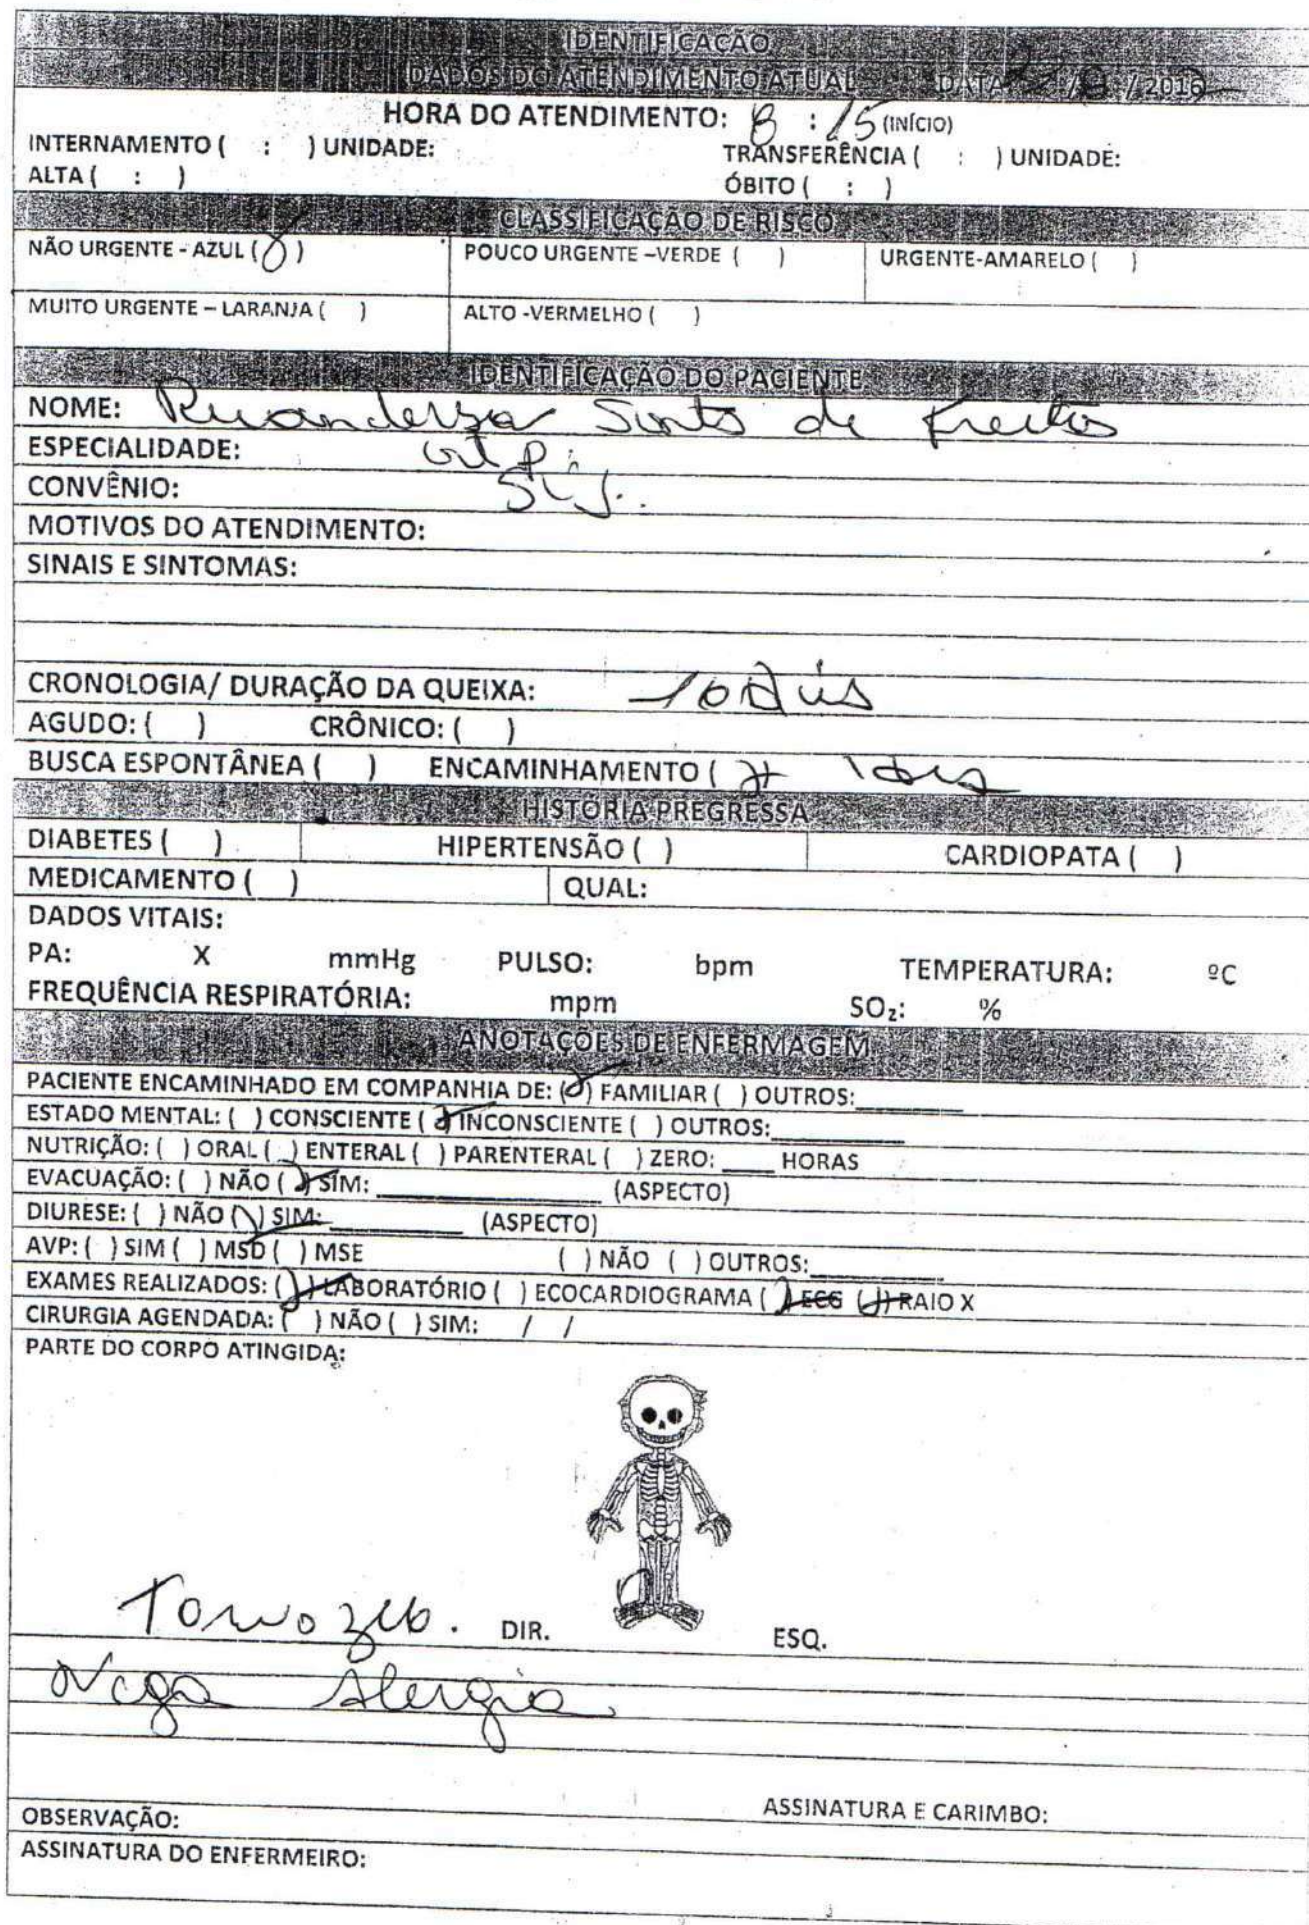 IDENTIFICAÇÃO
DADOS DO ATENDIMENTO ATUAL DATA / / 2016
HORA DO ATENDIMENTO: 8 : 15 (INÍCIO)
INTERNAMENTO ( : ) UNIDADE: TRANSFERÊNCIA ( : ) UNIDADE:
ALTA ( : ) ÓBITO ( : )
CLASSIFICAÇÃO DE RISCO
NÃO URGENTE - AZUL ( ) POUCO URGENTE –VERDE ( ) URGENTE-AMARELO ( )
MUITO URGENTE – LARANJA ( ) ALTO -VERMELHO ( )
IDENTIFICAÇÃO DO PACIENTE
NOME: de Freitas
ESPECIALIDADE:
CONVÊNIO:
MOTIVOS DO ATENDIMENTO:
SINAIS E SINTOMAS:
CRONOLOGIA/ DURAÇÃO DA QUEIXA: 10 dias
AGUDO: ( ) CRÔNICO: ( )
BUSCA ESPONTÂNEA ( ) ENCAMINHAMENTO (
HISTÓRIA PREGRESSA
DIABETES ( ) HIPERTENSÃO ( ) CARDIOPATA ( )
MEDICAMENTO ( ) QUAL:
DADOS VITAIS:
PA: X mmHg PULSO: bpm TEMPERATURA: ºC
FREQUÊNCIA RESPIRATÓRIA: mpm SO₂: %
ANOTAÇÕES DE ENFERMAGEM
PACIENTE ENCAMINHADO EM COMPANHIA DE: ( ) FAMILIAR ( ) OUTROS:
ESTADO MENTAL: ( ) CONSCIENTE ( ) INCONSCIENTE ( ) OUTROS:
NUTRIÇÃO: ( ) ORAL ( ) ENTERAL ( ) PARENTERAL ( ) ZERO: ____ HORAS
EVACUAÇÃO: ( ) NÃO ( ) SIM: ____ (ASPECTO)
DIURESE: ( ) NÃO ( ) SIM: ____ (ASPECTO)
AVP: ( ) SIM ( ) MSD ( ) MSE ( ) NÃO ( ) OUTROS:
EXAMES REALIZADOS: ( ) LABORATÓRIO ( ) ECOCARDIOGRAMA ( ) ECG ( ) RAIO X
CIRURGIA AGENDADA: ( ) NÃO ( ) SIM: / /
PARTE DO CORPO ATINGIDA:
DIR. ESQ.
Nega Alergia
ASSINATURA E CARIMBO:
OBSERVAÇÃO:
ASSINATURA DO ENFERMEIRO: